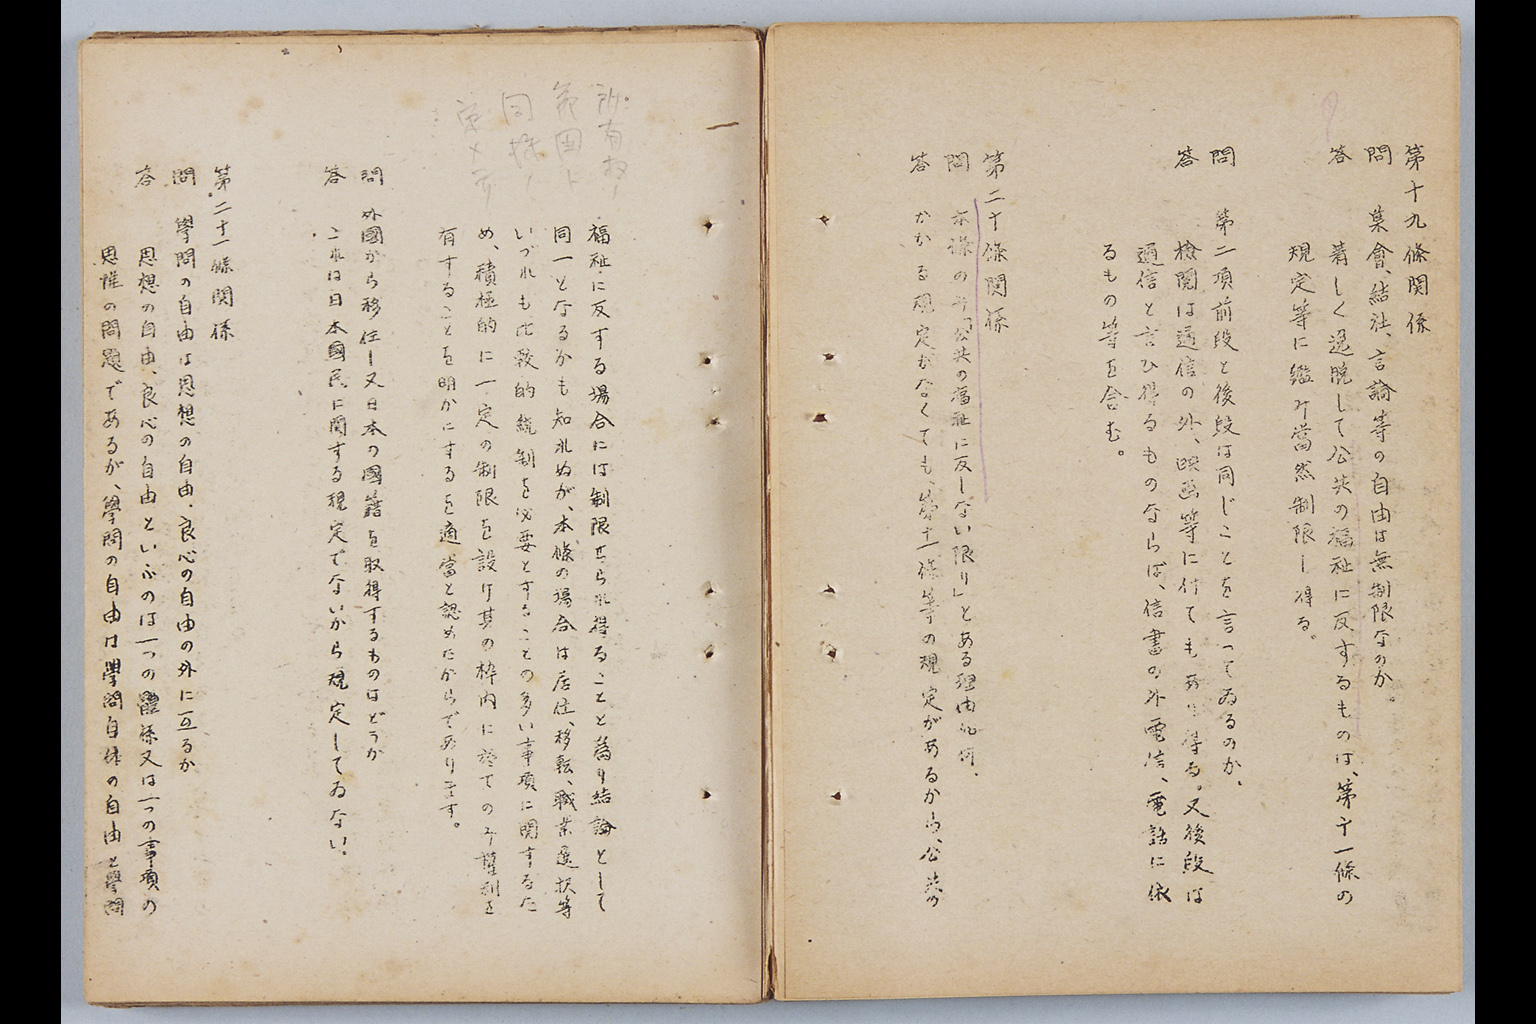 第十九條関係
問　集會、結社、言論等の自由は無制限なのか。
答　著しく逸脱して公共の福祉に反するものは、第十一條の
規定等に鑑み當然制限し得る。
問　第二項前段と後段は同じことを言つてゐるのか。
答　檢閲は通信の外、映画等に付てもあり得る。又後段は
通信と言ひ得るものならば、信書の外電信、電話に依
るもの等を含む。
第二十條関係
問　本條のみ「公共の福祉に反しない限り」とある理由如何、
答　かかる規定がなくても、第十一條等の規定があるから、公共の
福祉に反する場合には制限せられ得ることと為り結論として
同一となるかも知れぬが、本條の場合は居住、移転、職業選択等
いづれも比較的統制を必要とすることの多い事項に関するた
め、積極的に一定の制限を設け其の枠内に於てのみ権利を
有することを明かにするを適當と認めたからであります。
問　外國から移住し又日本の國籍を取得するものはどうか
答　これは日本國民に関する規定でないから規定してゐない、
第二十一條関係
問　學問の自由は思想の自由、良心の自由の外に亘るか
答　思想の自由、良心の自由といふのは一つの體系又は一つの事項の
思惟の問題であるが、學問の自由は學問自体の自由と學問
所有权ノ
範囲ト
同様ノ